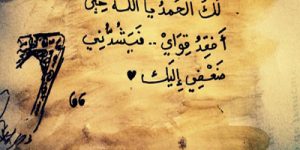 لَكَ الحَمدُ يا اللـه
أفقِدُ قِوَايْ .. فَيَشُدُّنِي
ضَعْفِي إليَك ♥